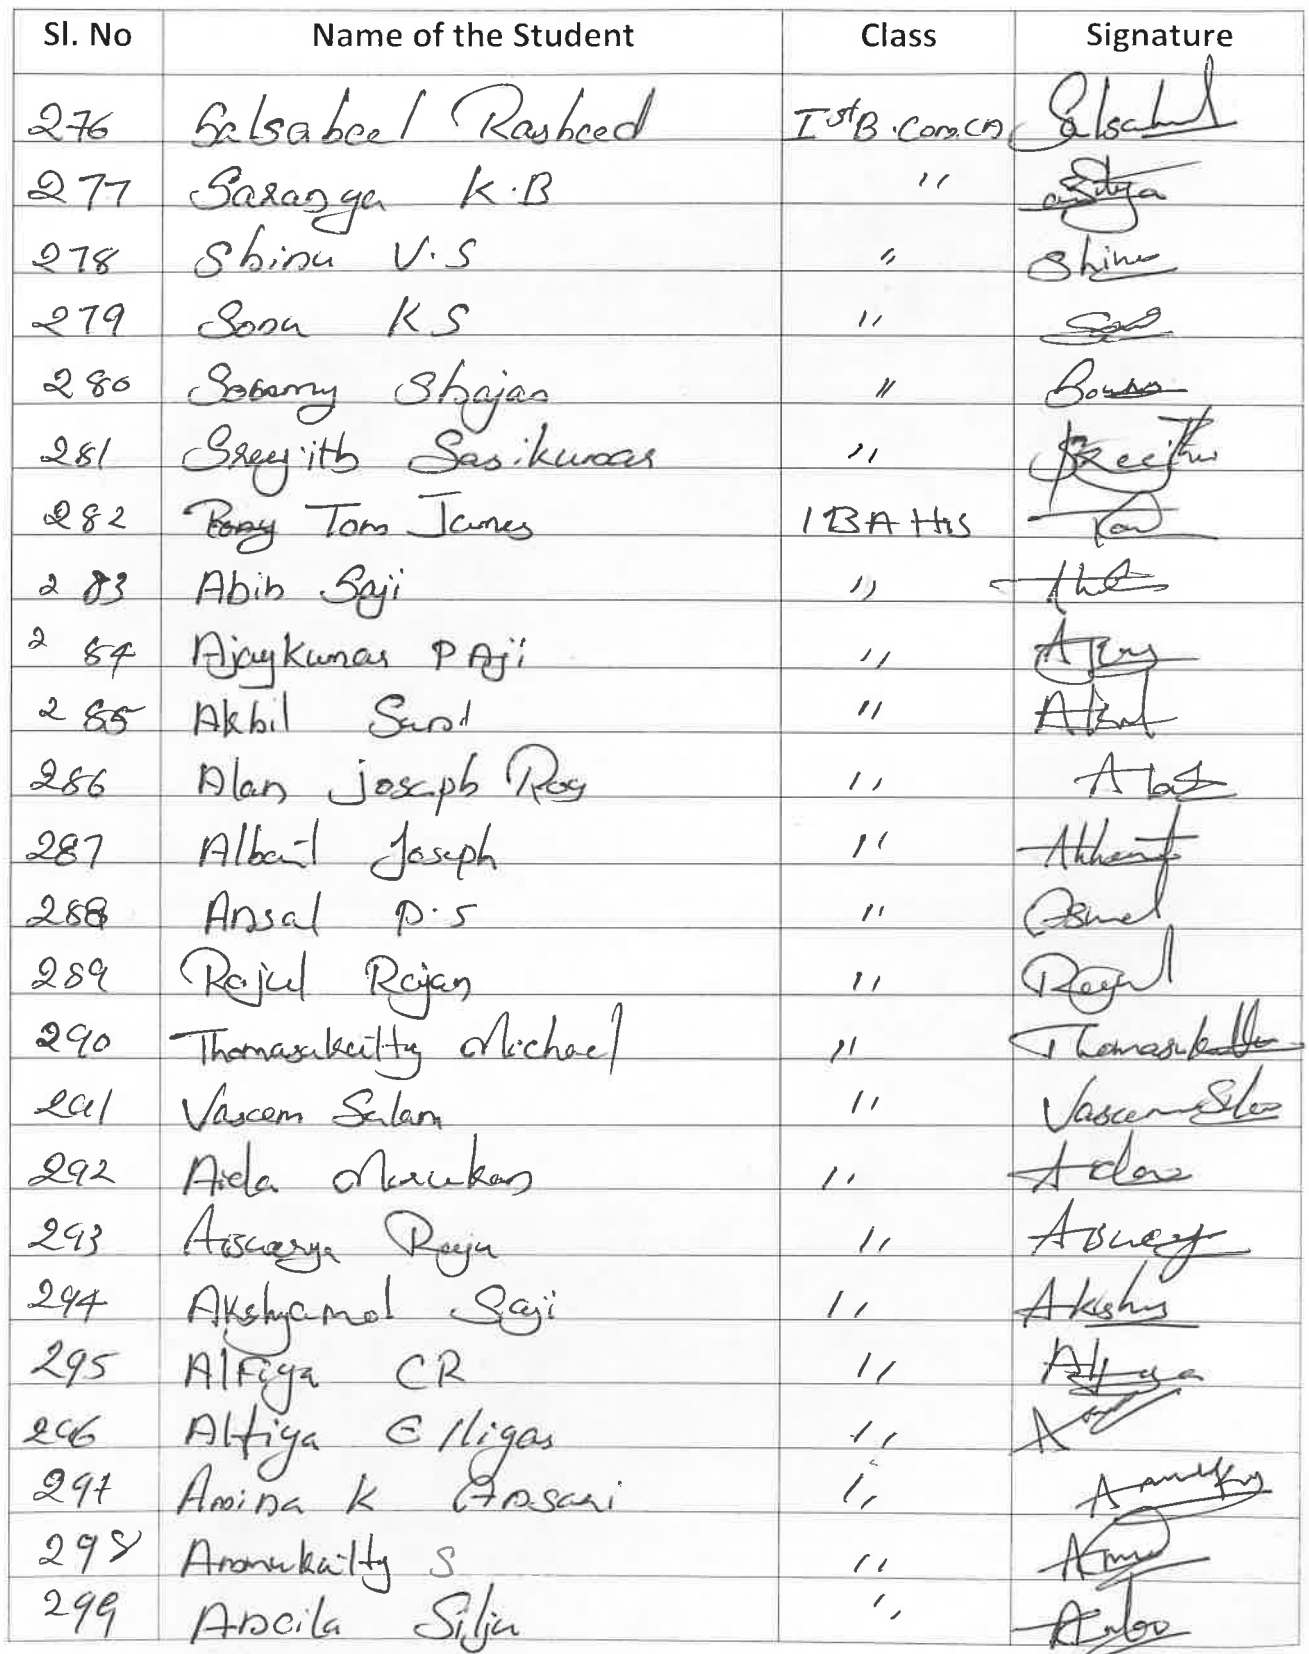 Sl. No Name of the Student Class Signature
276 Salsabeel Rasheed Ist B.Com.CA Salsabeel
277 Saranya K.B "
278 Shinu V.S " Shinu
279 Sonu K S "
280 Shajan "
281 Sreejith Sasikumar " Sreejith
282 Tom James I BA His Tom
283 Abin Saji "
284 Ajaykumar P Aji " Ajay
285 Akhil "
286 Alan Joseph Roy " Alan
287 Albert Joseph "
288 Ansal P.S "
289 Rajul Rajan " Rajul
290 Thomaskutty Michael "
291 Vaseem Salam " Vaseem
292 Aida Murukan " Aida
293 Aiswarya Reeju "
294 Akshyamol Saji " Akshy
295 Alfiya CR " Alfiya
296 Alfiya Elligas "
297 Amina K Ansari "
298 Ammukutty S "
299 Ancila Silju "